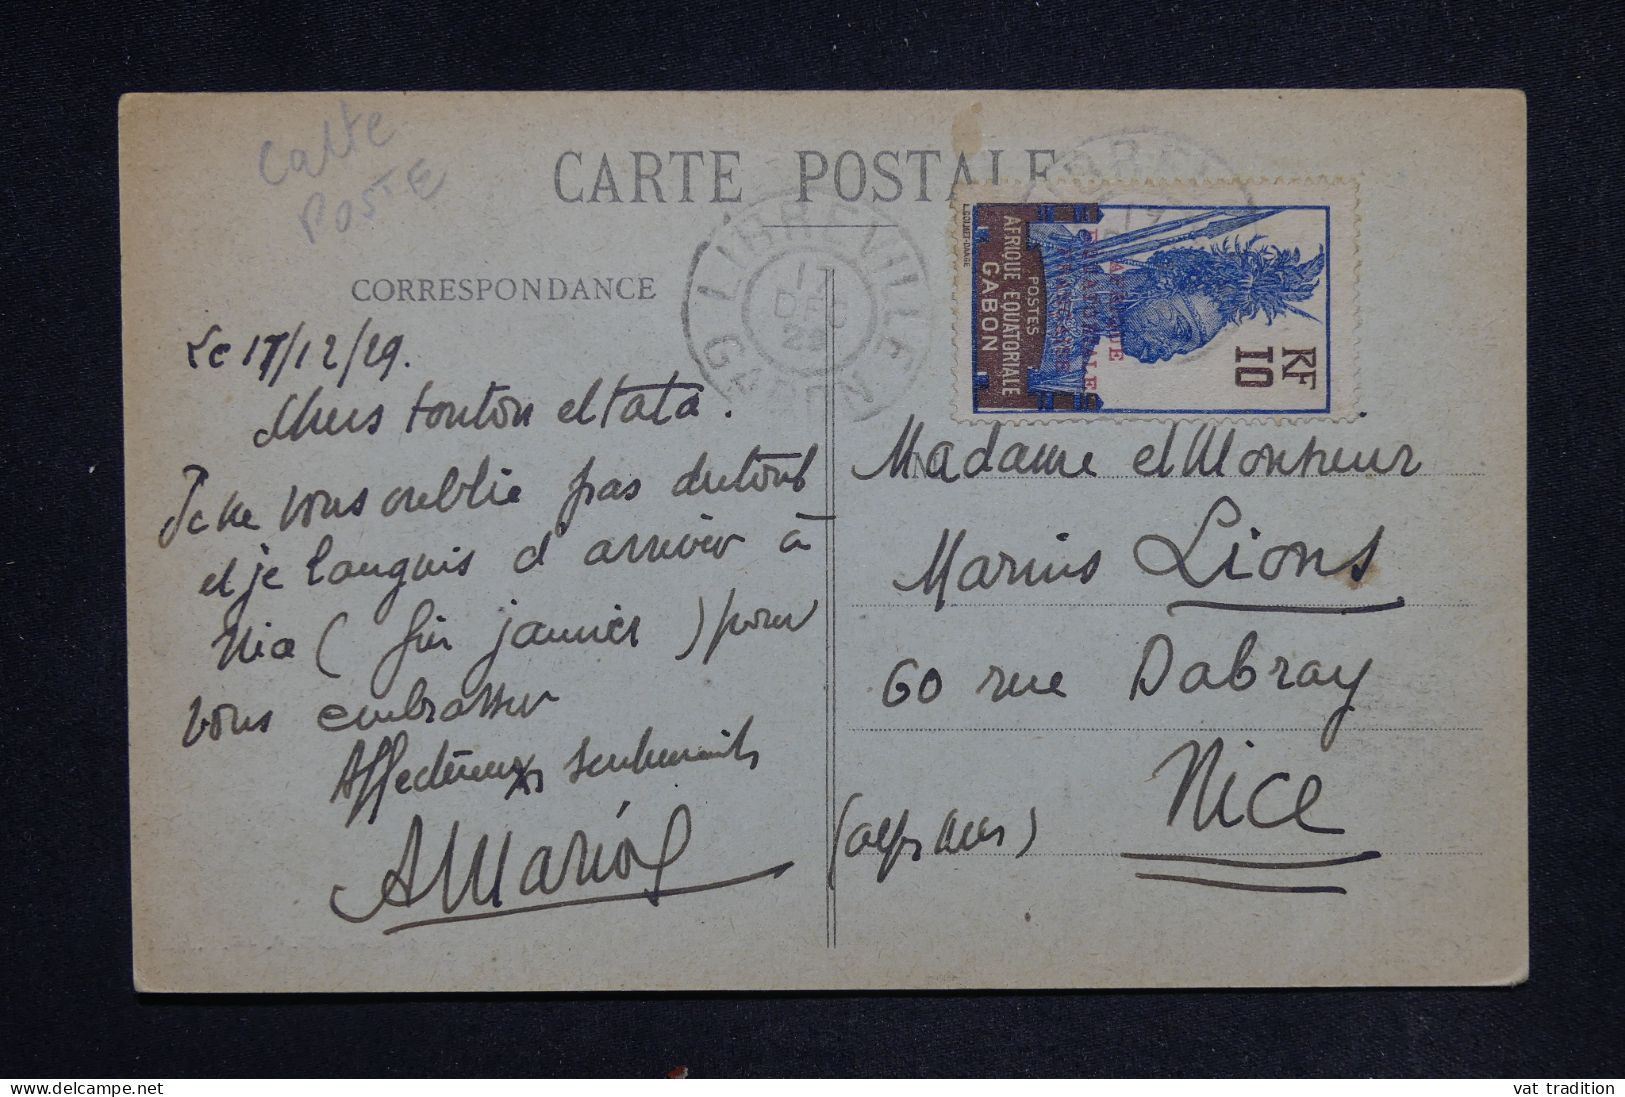 Carte
POSTE
CARTE POSTALE
CORRESPONDANCE
LIBREVILLE
17
DEC
29
GABON
L. COLMET-DAAGE
POSTES
AFRIQUE EQUATORIALE
GABON
AFRIQUE
ÉQUATORIALE
FRANÇAISE
RF
10
Le 17/12/29.
Chers tonton et tata.
Je ne vous oublie pas du tout
et je languis d'arriver à
Nice (fin janvier) pour
vous embrasser
Affectueux sentiments
AMarios
Madame et Monsieur
Marius Lions
60 rue Dabray
Nice
(alpes Mmes)
vat tradition
www.delcampe.net